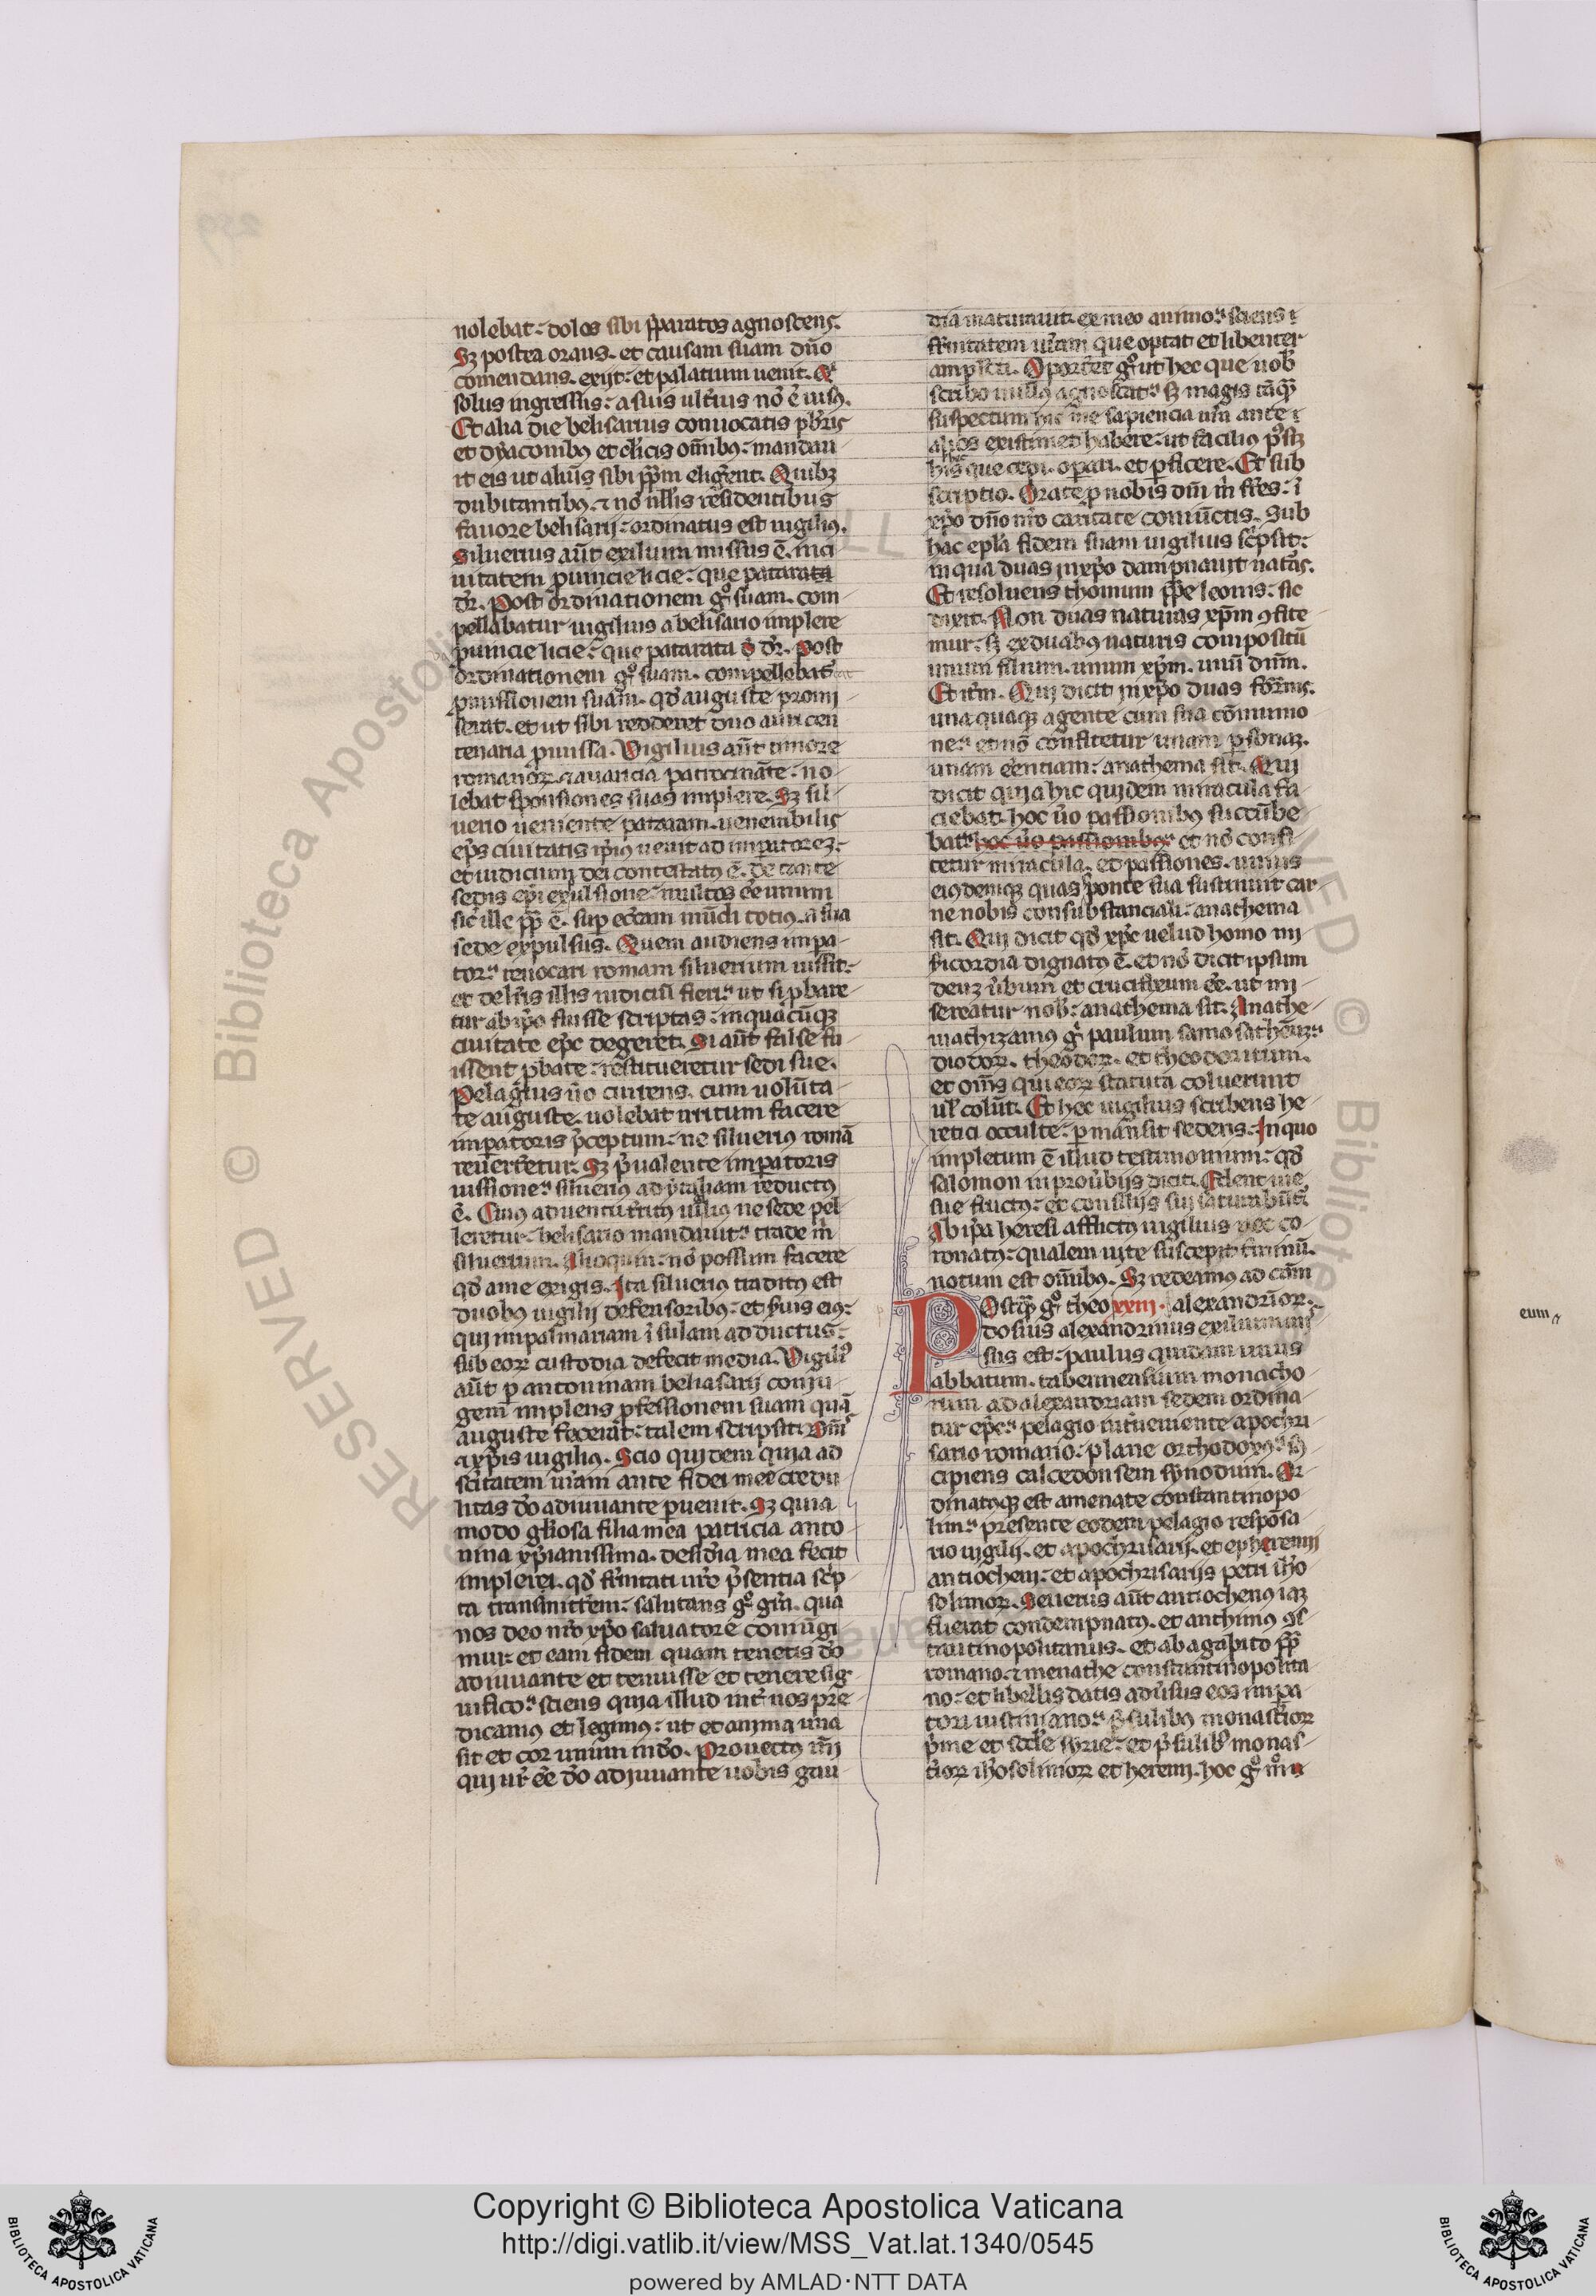 nolebat. dolos sibi p̄paratos agnoscens.
Sꝫ postea orans. et causam suam dn̄o
comendans. exijt. et palatium uenit. Qͥ
solus ingressus. a suis ult̄ius nō ē uisꝯ.
Et alia die belisarius conuocatis pb̄ris
et dyaconibꝯ et cl̄icis om̄ibꝯ. mandau
it eis ut aliū sibi pp̄m eliḡent. Quibꝫ
dubitantibꝯ. ⁊ nō nll̄is residentibus
fauore belisarij. ordinatus est uigiliꝯ.
Siluerius aūt exilium missus ē. in ci
uitatem puincie licie. que patarata
dr̄. Post ordinationem gͦ suam. com
pellabatur uigilius a belisario implere
puincie licie. que patarata dr̄. Post
ordinationem gͦ suam. compellebat̄
pmissionem suam. qd̄ auguste promi
serat. et ut sibi redderet duo auri cen
tenaria pmissa. Uigilius aūt timore
romanoꝝ. ⁊ auaricia patrocināte. no
lebat sponsiones suas implere. Sꝫ sil
uerio ueniente pataram. uenerabilis
ep̄s ciuitatis ip̄iꝯ uenit ad imp̄atoreꝫ.
et iudicium dei contestatꝯ ē. de tante
sedis ep̄i expulsione. multos ēē
sic̄ ille pp̄ ē. sup eccl̄am mūdi totiꝯ. a sua
sede expulsus. Quem audiens impa
tor. reuocari romam siluerium iussit.
et de lr̄is illis iudiciū fieri. ut si pbare
tur ab ip̄o fuisse scriptas. in quacūqꝫ
ciuitate ep̄c degeret. Si aūt false fu
issent pbate. restitueretur sedi sue.
Pelagius ūo currens. cum uolūta
te auguste. uolebat irritum facere
impatoris p̄ceptum. ne siluerius romā
reuerteretur. Sꝫ p̄ualente impatoris
iussione. siluerius ad ytaliam reductꝯ
ē. Cuiꝯ aduentu ne sede pel
leretur. belisario mandauit. trade m̄
siluerium. Alioquin. nō possum facere
qd̄ a me exigis. Ita siluerius traditꝯ est
duobꝯ uigilij defensoribꝯ. et suis eiꝯ.
qui in palmariam īsulam adductus.
sub eoꝝ custodia defecit media. Uigili
aūt p antoninam belisarij coniu
gem implens pfessionem suam quā
auguste fecerat. talem scripsit. Dn̄is
⁊ xp̄is uigiliꝯ. Scio quidem quia ad
sc̄itatem ur̄am ante fidei mee credu
litas dō adiuuante puenit. Sꝫ quia
modo gl̄iosa filia mea patricia anto
nina xp̄ianissima. desid̄ia mea fecit
impleri. qd̄ fr̄nitati ur̄e p̄sentia sc̄p
ta transmitt̄em. salutans gͦ gr̄a. qua
nos deo nr̄o xp̄o saluatore coniūgi
mur. et eam fidem quam tenetis dō
adiuuante et tenuisse et tenere sig
nifico. sciens quia illud int̄ nos pre
dicamꝯ et legimꝯ. ut et anima una
sit et cor unum in dō. Prouectꝯ m̄i
qui ur̄ ēē dō adiuuante uobis gau
dia maturauit. ex meo animo. sciens ⁊
fr̄nitatem ur̄am que optat et libenter
amplecti. Oportet gͦ ut hec que uob̄
scribo nullꝯ agnoscat. sꝫ magis tāqͣ
suspectum me sapiencia ur̄a ante ⁊
alios existimet habere. ut facilius possꝫ
his que cepi. opari. et pficere. Et sub
scriptio. Orate p nobis dn̄i m̄ fr̄es. ī
xp̄o dn̄o nr̄o caritate coniūctis. Sub
hac epl̄a fidem suam uigilius sc̄psit.
in qua duas in xp̄o dampnauit nat̄as.
Et resoluens thomum pp̄e leonis. sic
dixit. Non duas naturas xp̄m ꝯfite
mur. sꝫ ex duabꝯ naturis compositū
unum filium. unum xp̄m. unū dn̄m.
Et it̄m. Qui dicit in xp̄o duas formas.
una quaqꝫ agente cum sua cōmunio
ne. et nō confitetur unam p̄sonaꝫ.
unam ēentiam. anathema sit. Qui
dicit quia hic quidem miracula fa
ciebat. hoc ūo passionibꝯ succūbe
bat. hoc ūo passionibꝯ et nō confi
tetur miracula. et passiones. unius
eiꝯdemqꝫ quas sponte sua sustinuit car
ne nobis consubstanciali. anathema
sit. Qui dicit qd̄ xp̄c uelud homo mi
s̄icordia dignatꝯ ē. et nō dicit ipsum
deuꝫ ūbum et crucifixum ēē. ut mi
sereatur nob̄. anathema sit. Anathe
mathizamꝯ gͦ paulum samosathenꝫ.
diodoꝝ. theodoꝝ. et theodoritum.
et om̄s qui eoꝝ statuta coluerunt
ul̄ colūt. Et hec uigilius scribens he
retici occulte. pmansit sedens. In quo
impletum ē illud testimonium. qd̄
salomon in prouerbijs dicit. Edent uie
sue fructꝯ. et consilijs suis saturabūt̄.
Ab ip̄a heresi afflictꝯ uigilius nec co
ronatꝯ. qualem uite suscepit terminū.
notum est om̄ibꝯ. Sꝫ redeamꝯ ad cām
Postqͣ gͦ theo xxiij. alexandrioꝝ.
dosius alexandrinus exilium mis
sus est. paulus quidam unus
abbatum. tabennensium monacho
rum ad alexandriam sedem ordina
tur ep̄c. pelagio int̄ueniente apocri
sario romano. plane orthodoxꝯ. sus
cipiens calcedonsem synodum. Or
dinatqꝫ est a menate constantinopo
lim. presente eodem pelagio respōsa
rio uigilij. et apochrisarij. et ephremij
antiochen. et apochrisarijs petri ih̄o
solimoꝝ. Seuerus aūt antiochenꝯ iaꝫ
fuerat condempnatꝯ. et anthimꝯ ꝯs
tantinopolitanus. et ab agapito pp̄
romano. ⁊ menathe constantinopolita
no. et libellis datis adūsus eos impa
tori iustiniano. p̄sulibꝯ monast̄ioꝝ
p̄me et scd̄e syrie. et p̄sulibꝯ monas
t̄ioꝝ ih̄osolimoꝝ et heremi. hoc gͦ
eum
Copyright © Biblioteca Apostolica Vaticana
http://digi.vatlib.it/view/MSS_Vat.lat.1340/0545
powered by AMLAD·NTT DATA
BIBLIOTECA APOSTOLICA VATICANA
BIBLIOTECA APOSTOLICA VATICANA